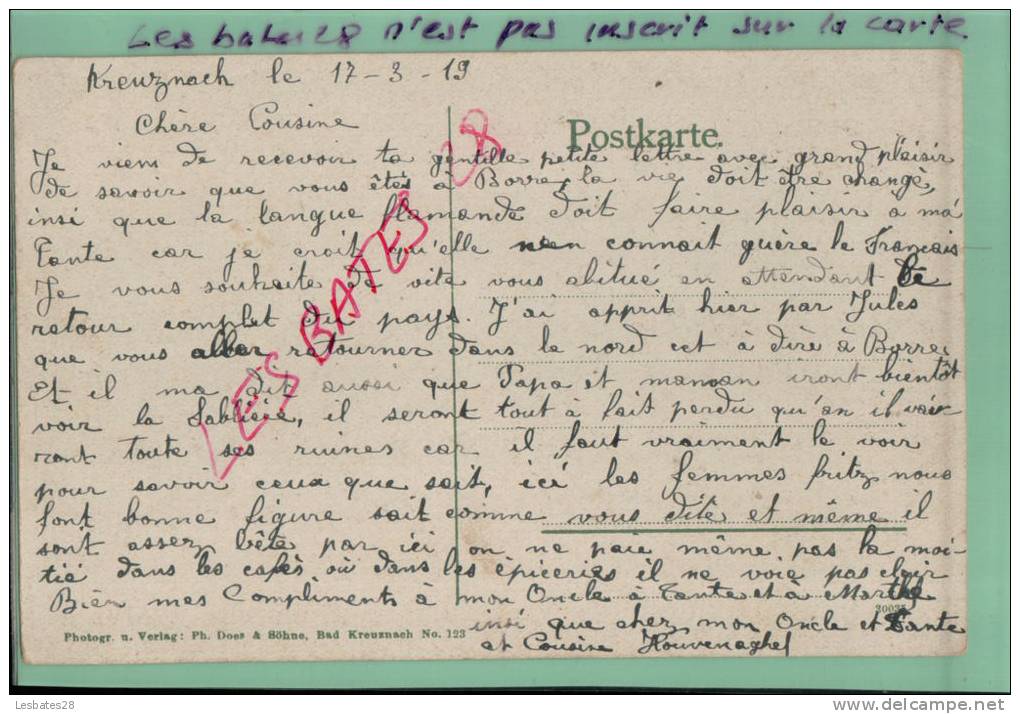 Les bates28 n'est pas inscrit sur la carte.
Kreuznach le 17-3-19
Chère Cousine
Postkarte.
Je viens de recevoir ta gentille petite lettre avec grand plaisir
de savoir que vous êtés à Borre, la vie doit être changè,
insi que la langue flamande doit faire plaisir à ma
Tante car je croit qu'elle n'en connait guère le Francais
Je vous souhaite de vite vous abitué en attendant le
retour complet du pays. J'ai apprit hier par Jules
que vous aller retourner dans le nord cet à dire à Borre,
Et il ma dit aussi que Papa et maman iront bientôt
voir la Sablière, il seront tout à fait perdu qu'an il voir
ront toute ses ruines car il faut vraiment le voir
pour savoir ceux que sait, ici les femmes fritz nous
font bonne figure sait comme vous dite et même il
sont assez bête par ici on ne paie même pas la moi-
tié dans les cafès où dans les épiceries il ne voie pas clair
Bien mes Compliments à mon Oncle à Tante et à Marthe
insi que chez mon Oncle et Tante
et Cousine Houvenaghel
LES BATES 28
Photogr. u. Verlag: Ph. Does & Söhne, Bad Kreuznach No. 123
Lesbates28
delcampe.net